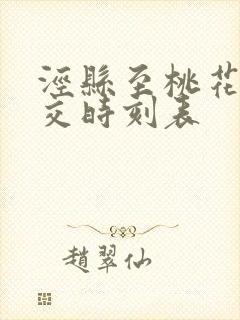 涇縣至桃花
交時刻表
趙翠仙